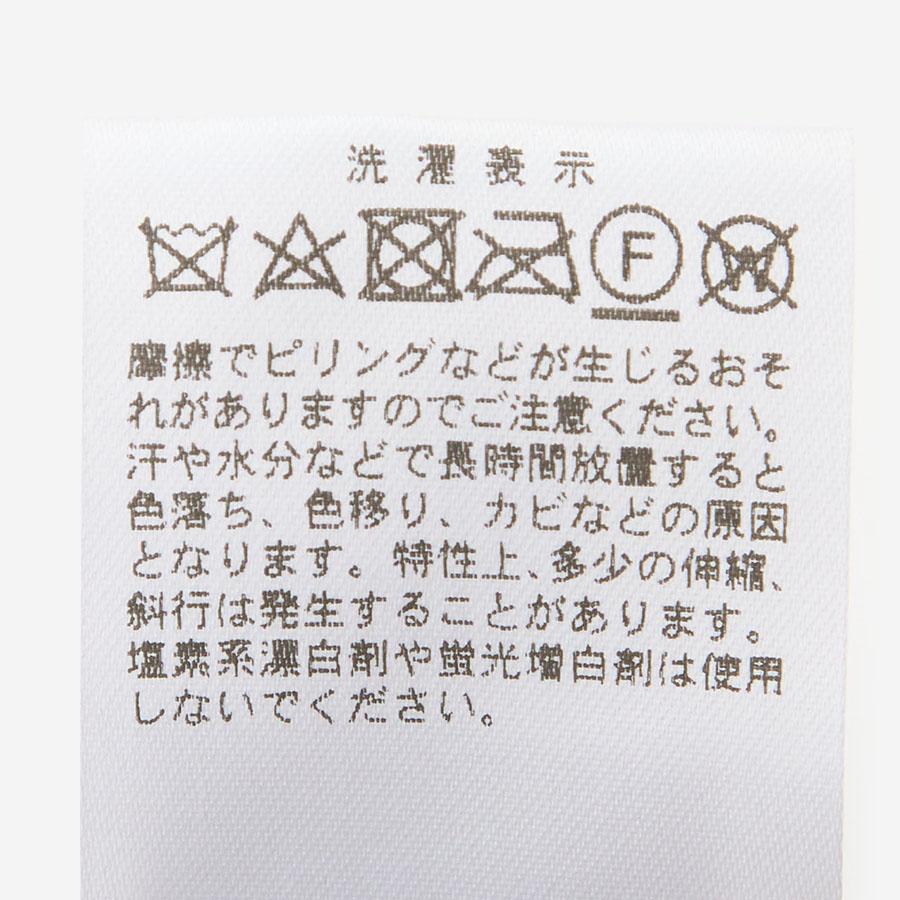 洗濯表示
F
W
摩擦でピリングなどが生じるおそ
れがありますのでご注意ください。
汗や水分などで長時間放置すると
色落ち、色移り、カビなどの原因
となります。特性上、多少の伸縮、
斜行は発生することがあります。
塩素系漂白剤や蛍光増白剤は使用
しないでください。